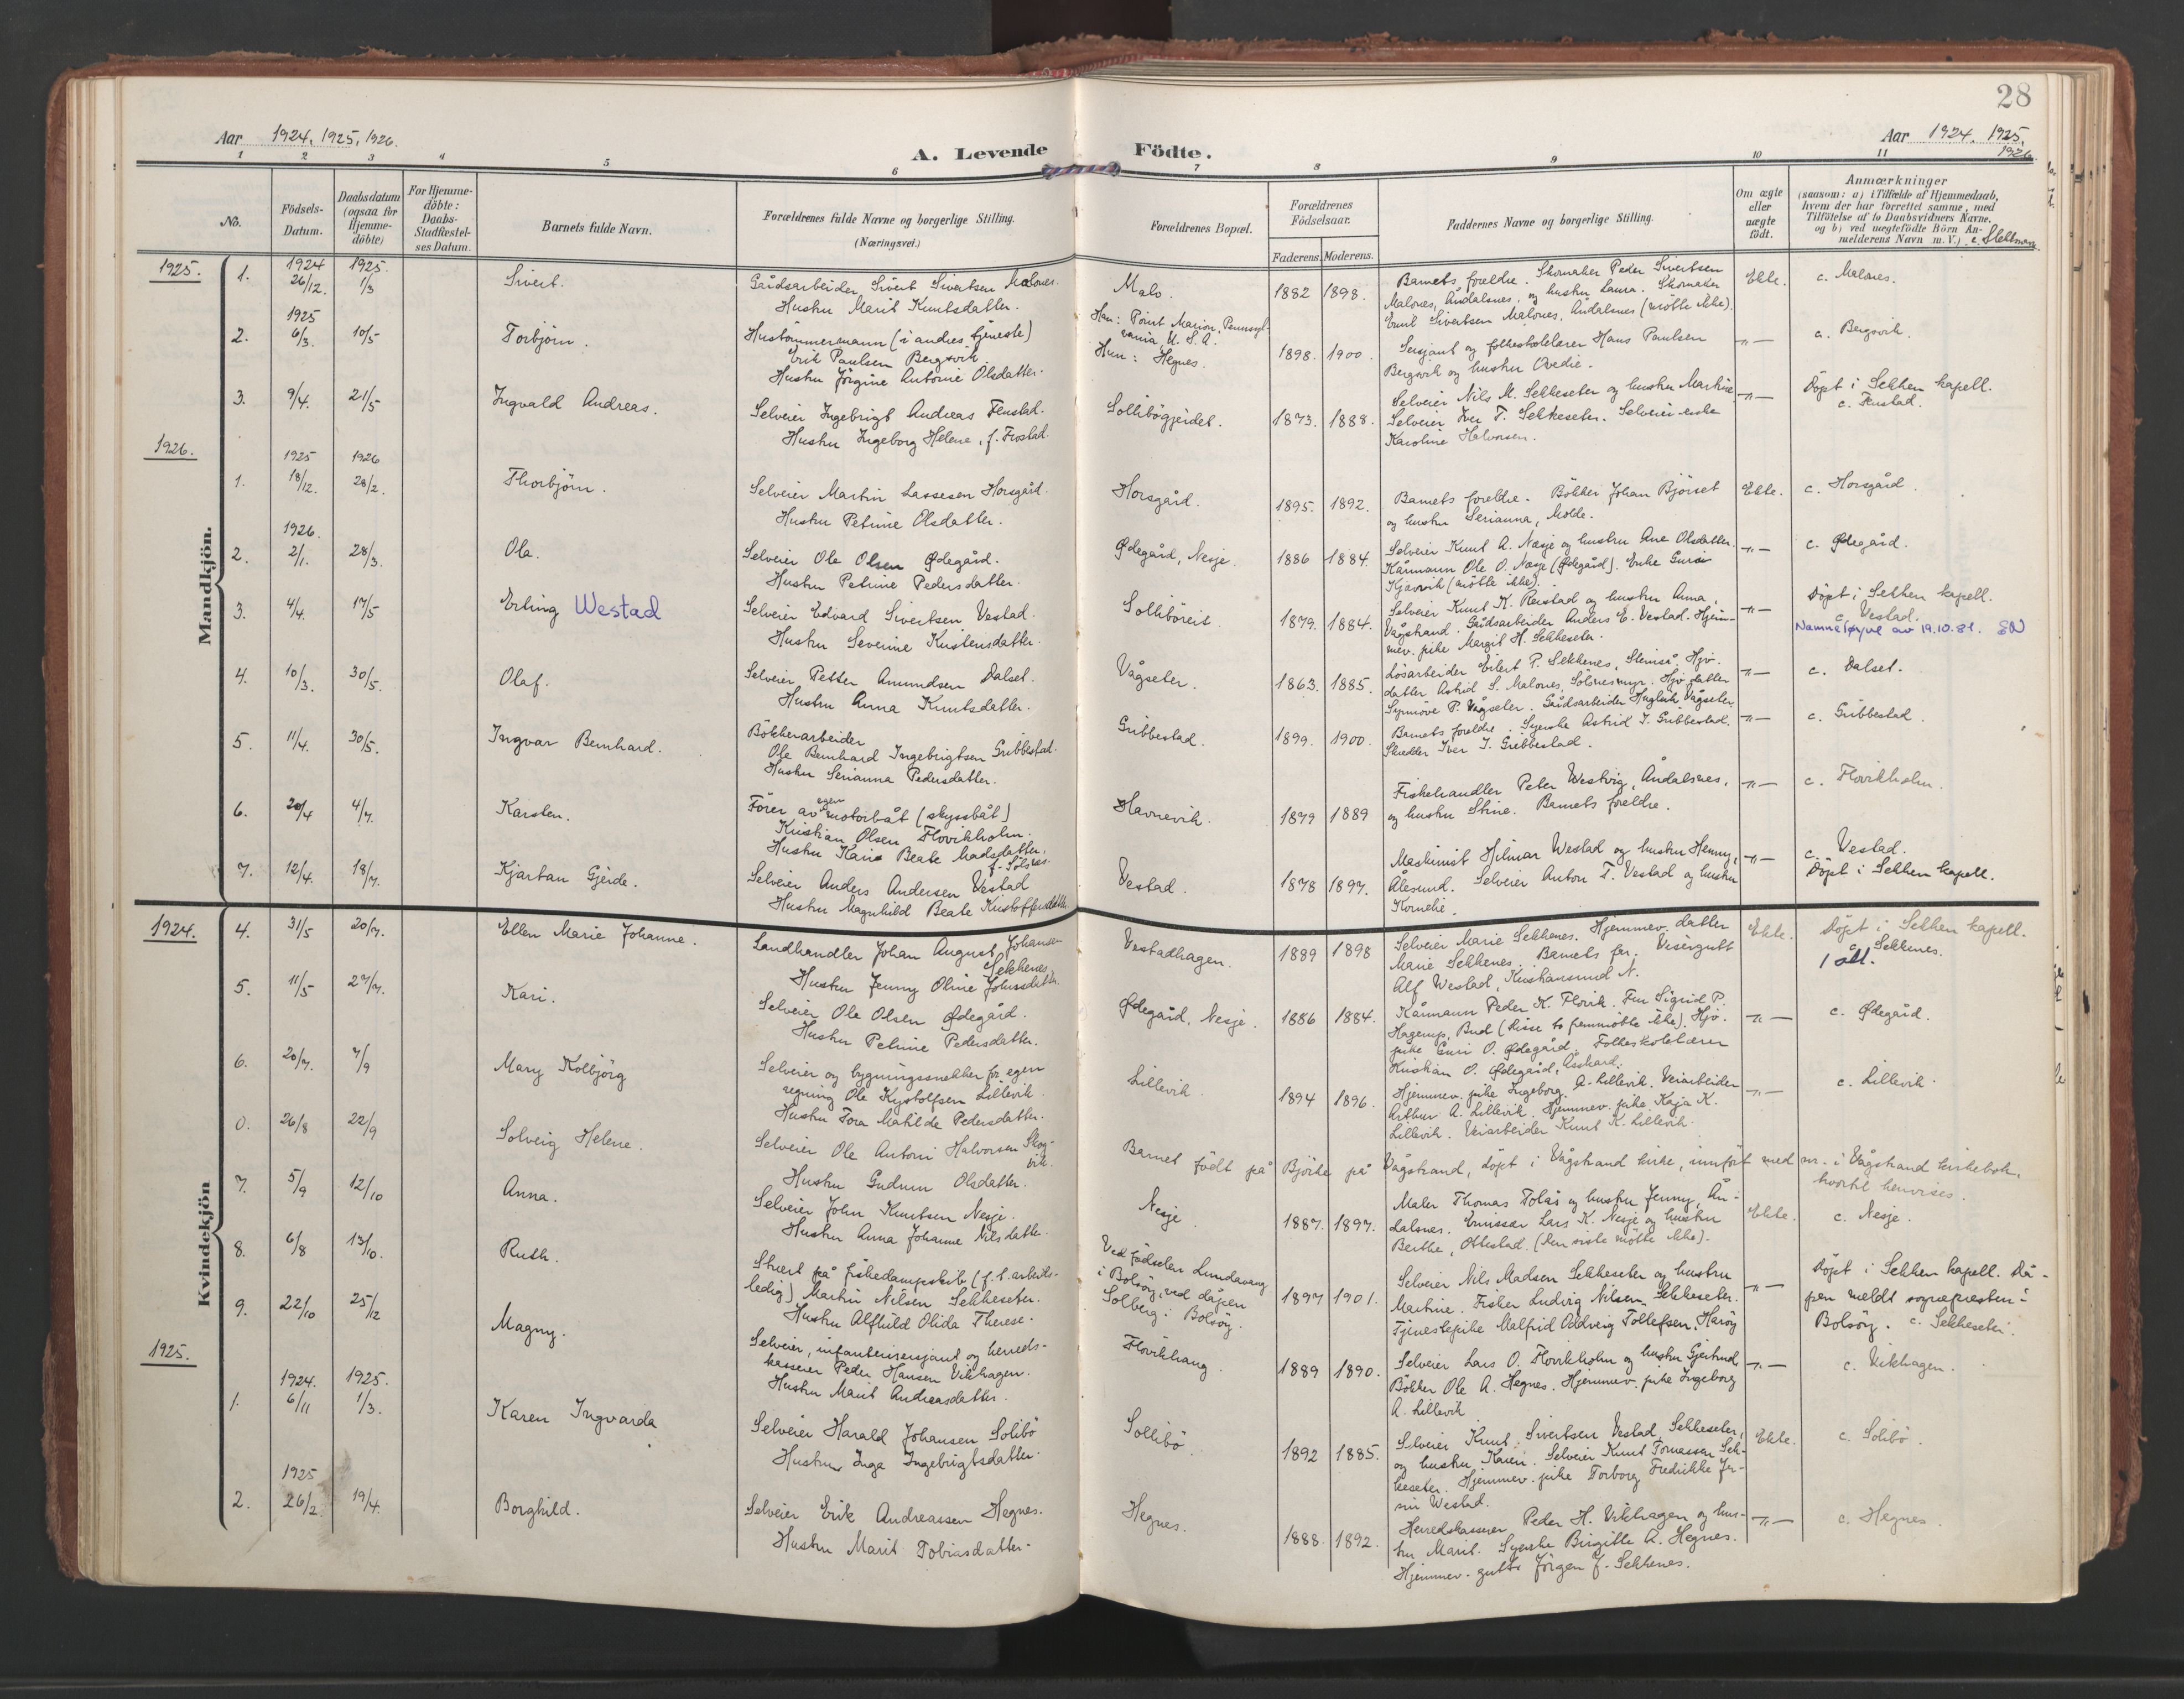 28
Aar 1924, 1925, 1926.
A. Levende Födte.
Aar 1924, 1925,
1926.
1 2 3 4 5 6 7 8 9 10 11
No.
Födsels-
Datum.
Daabsdatum
(ogsaa for
Hjemme-
döbte)
For Hjemme-
döbte:
Daabs-
Stadfæstel-
ses Datum.
Barnets fulde Navn.
Forældrenes fulde Navne og borgerlige Stilling.
(Næringsvei.)
Forældrenes Bopæl.
Forældrenes
Födselsaar.
Faderens. Moderens.
Faddernes Navne og borgerlige Stilling.
Om ægte
eller
uægte
födt.
Anmærkninger
(saasom: a) i Tilfælde af Hjemmedaab,
hvem der har forrettet samme, med
Tilföielse af to Daabsvidners Navne,
og b) ved uegtefödte Börn An-
melderens Navn m. V.) c.
Mandkjön.
1925.
1. 1924 26/12. 1925. 1/3 Sivert.
Gårdsarbeider Sivert Sivertsen Malones.
Hustru Marit Knutsdatter.
Malo. 1882 1898.
Barnets foreldre. Skomaker Peder Sivertsen
Malones, Åndalsnes, og hustru Laura. Skomaker
Emil Sivertsen Malones, Åndalsnes (mötte ikke).
Ekte. c. Malones.
2. 1925 6/3. 10/5 Torbjörn.
Hustömmermann (i andres tjeneste)
Erik Paulsen Bergsvik.
Hustru Jörgine Antonie Olsdatter.
Han: Point Marion, Pennsyl-
vania, U. S. A.
Hun: Hegnes. 1898. 1900.
Sersjant og folkeskolelærer Hans Paulsen
Bergsvik og hustru Ovedie.
-"- c. Bergsvik.
3. 9/4. 21/5 Ingvald Andreas.
Selveier Ingebrigt Andreas Frustad.
Hustru Ingeborg Helene, f. Frostad.
Sollibögjerdet. 1873. 1888.
Selveier Nils M. Sekkeseter og hustru Martine.
Selveier Iver T. Sekkeseter. Selveierenke
Karoline Halvorsen.
-"- Döpt i Sekken kapell.
c. Frustad.
1926.
1. 1925 18/12. 1926 28/2. Thorbjörn.
Selveier Martin Lassesen Horsgård.
Hustru Petrine Olsdatter.
Horsgård. 1895. 1892.
Barnets foreldre. Bökker Johan Björset
og hustru Serianna, Molde.
Ekte. c. Horsgård.
2. 1926. 2/1. 28/3. Ola.
Selveier Ole Olsen Ødegård.
Hustru Petrine Pedersdatter.
Ødegård, Nesje. 1886 1884.
Selveier Knut A. Næsje og hustru Ane Olsdatter.
Kårmann Ole O. Næsje (Ødegård). Enke Guri
Hjavik (mötte ikke).
-"- c. Ødegård.
3. 4/4. 17/5 Erling Westad
Selveier Edvard Sivertsen Vestad.
Hustru Severine Kristensdatter.
Solliböreit. 1879. 1884.
Selveier Knut K. Reistad og hustru Anna,
Vågstrand. Gårdsarbeider Anders E. Vestad. Hjem-
mev. pike Margit H. Sekkeseter.
-"- Döpt i Sekken kapell.
c. Vestad.
Namneløyve av 19.10.81. EN
4. 10/3. 30/5. Olaf.
Selveier Petter Amundsen Dalset.
Hustru Anna Knutsdatter.
Vågseter. 1863. 1885.
Lösarbeider Eilert P. Sekkenes, Hjv.
datter Astrid S. Malones, Sölsnesmyr. Hjv. datter
Synnöve P. Vågseter. Gårdsarbeider Vågseter.
-"- c. Dalset.
5. 11/4. 30/5. Ingvar Bernhard.
Bökkerarbeider
Ole Bernhard Ingebrigtsen Gribbestad.
Hustru Serianna Pedersdatter.
Gribbestad. 1899. 1900.
Barnets foreldre. Syerske Astrid I. Gribbestad.
Skredder Iver I. Gribbestad.
-"- c. Gribbestad.
6. 20/4 4/7. Karsten.
Förer av egen motorbåt (skyssbåt)
Kristian Olsen Flovikholm.
Hustru Karie Beate Madsdatter,
f. Sölsnes.
Havnevik. 1879 1889
Fiskehandler Peter Westvig, Åndalsnes,
og hustru Stine. Barnets foreldre.
-"- c. Flovikholm.
7. 12/4. 18/7. Kjartan Gjerde.
Selveier Anders Andersen Vestad
Hustru Magnhild Beate Kristoffersdatter.
Vestad. 1878 1897.
Maskinist Hilmar Westad og hustru Henny,
Ålesund. Selveier Anton T. Vestad og hustru
Kornelie.
-"- c. Vestad.
Döpt i Sekken kapell.
Kvindekjön
1924.
4. 31/5 20/7. Ellen Marie Johanne.
Landhandler Johan August Johansen
Sekkenes.
Hustru Jenny Oline Johnsdatter.
Vestadhagen. 1889 1898
Selveier Marie Sekkenes. Hjemmev. datter
Marie Sekkenes. Barnets far. Visergutt
Alf Westad, Kristiansund N.
Ekte. Döpt i Sekken kapell.
c. Sekkenes.
1 att.
5. 11/5 27/7. Kari.
Selveier Ole Olsen Ødegård.
Hustru Petrine Pedersdatter.
Ødegård, Nesje. 1886 1884.
Kårmann Peder K. Flovik. Fru Sigrid P.
Hagerup, Bud (disse to mötte ikke). Hjv.
pike Guri O. Ødegård. Folkeskolelærer
Kristian O. Ødegård,
-"- c. Ødegård.
6. 20/7. 7/9 Mary Kolbjörg
Selveier og bygningssnekker for egen
regning Ole Kystolfsen Lillevik.
Hustru Tora Matilde Pedersdatter.
Lillevik. 1894 1896.
Hjemmev. pike Ingeborg A. Lillevik. Veiarbeider
Arthur A. Lillevik. Hjemmev. pike Kaja K.
Lillevik. Veiarbeider Knut K. Lillevik.
-"- c. Lillevik.
0. 26/8 22/9 Solveig Helene.
Selveier Ole Antoni Halvorsen Skog-
vik.
Hustru Gudrun Olsdatter.
Barnet födt på Björke på Vågstrand, döpt i Vågstrand kirke, innfört med nr. i Vågstrand kirkebok,
hvortil henvises.
7. 5/9 12/10 Anna.
Selveier John Knutsen Nesje.
Hustru Anna Johanne Nilsdatter.
Nesje. 1887. 1897.
Maler Thomas Tolås og hustru Jenny, Ån-
dalsnes. Emissær Lars K. Nesje og hustru
Berthe, Ottestad. (Den siste mötte ikke).
Ekte. c. Nesje.
8. 6/8 13/10. Ruth.
Stuert på fiskedampskib, (f. t. arbeids-
ledig) Martin Nilsen Sekkeseter.
Hustru Alfhild Olida Therese.
Ved födselen Lundavang
i Bolsöy, ved dåpen
Solberg i Bolsöy. 1897 1901.
Selveier Nils Madsen Sekkeseter og hustru
Martine. Fisker Ludvig Nilsen Sekkeseter.
Tjenestepike Malfrid Oddveig Tollefsen, Haröy
-"- Döpt i Sekken kapell. Då-
pen meldt sognepresten i
Bolsöy. c. Sekkeseter.
9. 22/10 25/12 Magny.
Selveier, infanterisersjant og herreds-
kasserer Peder Hansen Vikhagen.
Hustru Marit Andreasdatter.
Flovikhaug. 1889 1890.
Selveier Lars O. Flovikholm og hustru Gjertrud.
Bökker Ole A. Hegnes. Hjemmev. pike Ingeborg
A. Lillevik
-"- c. Vikhagen.
1925.
1. 1924. 6/11 1925. 1/3. Karen Ingvarda
Selveier Harald Johansen Solibö
Hustru Inga Ingebrigtsdatter
Sollibö. 1892 1885.
Selveier Knut Sivertsen Vestad, Sekkeseter,
og hustru Karen. Selveier Knut Tomassen Sek-
keseter. Hjemmev. pike Torborg Fredrikke Jen-
sine Westad.
Ekte. c. Solibö.
2. 1925 26/2. 19/4. Borghild.
Selveier Erik Andreassen Hegnes.
Hustru Marit Tobiasdatter.
Hegnes. 1888. 1892.
Herredskasserer Peder H. Vikhagen og hus-
tru Marit. Syerske Birgitte A. Hegnes.
Hjemmev. gutt Jörgen J. Sekkenes.
-"- c. Hegnes.